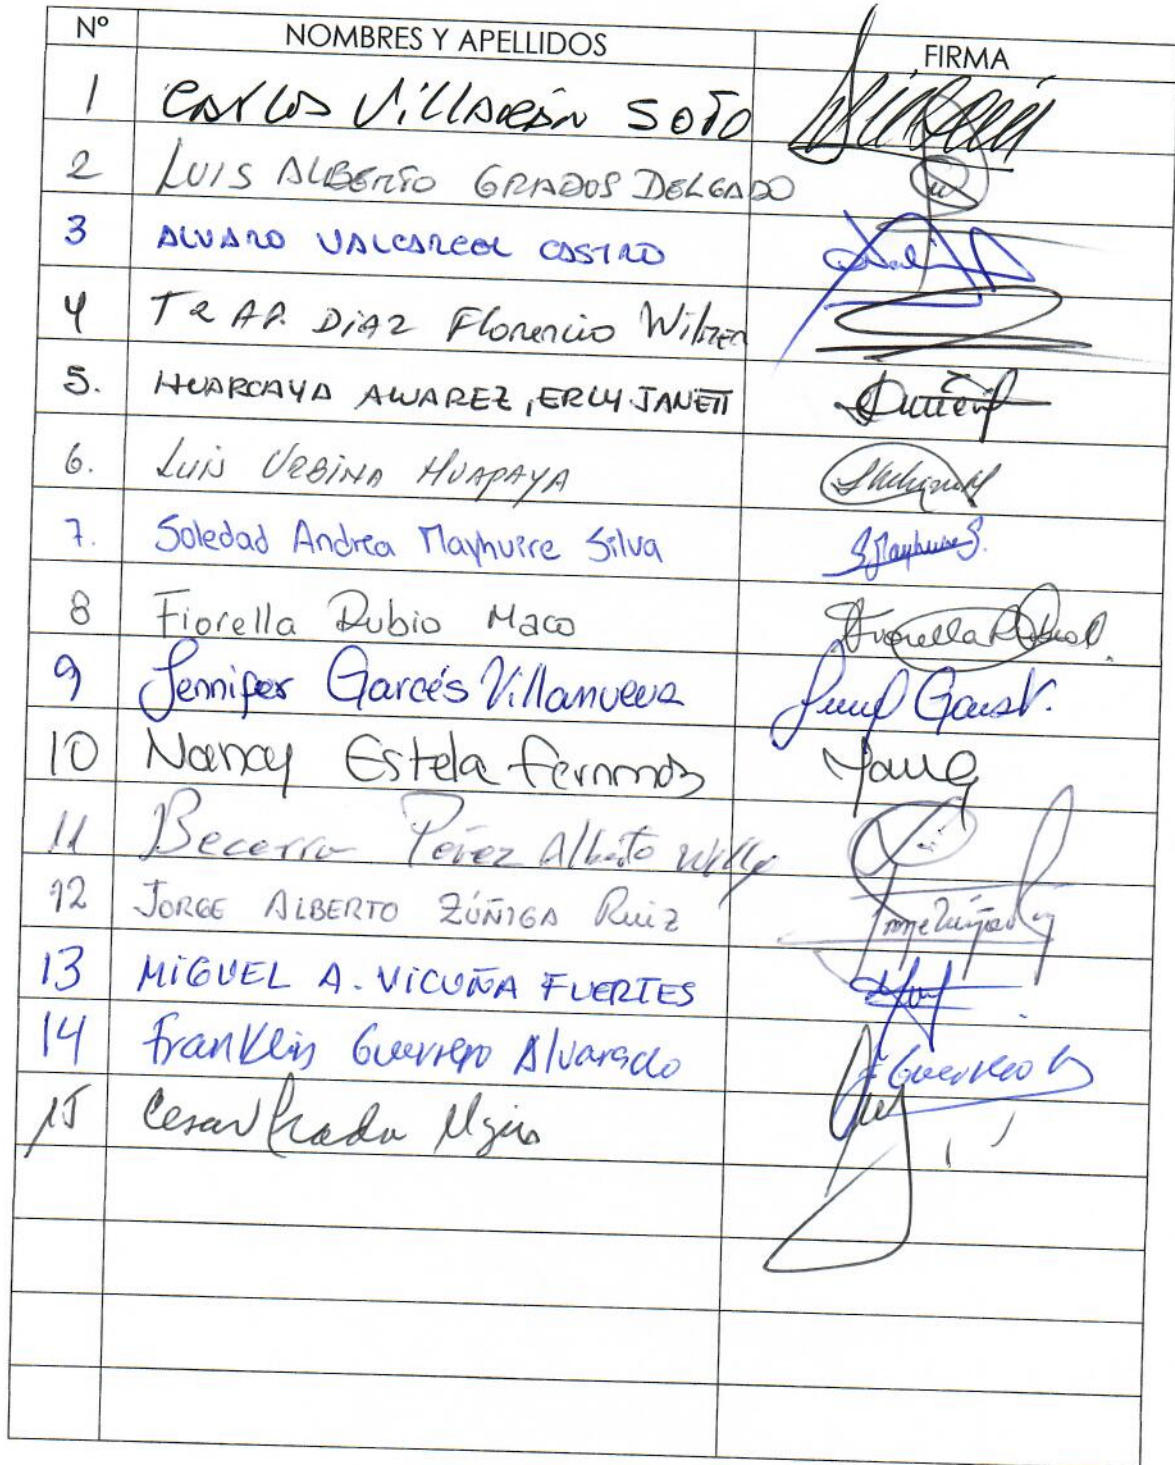 Nº NOMBRES Y APELLIDOS FIRMA
1 Carlos Villarán Soto
2 LUIS ALBERTO GRADOS DELGADO
3 ALVARO VALCARCEL CASTRO
4 T2 AP. DiAZ Florencio Wilmer
5. HUARCAYA ALVAREZ, ERLY JANETT
6. Luis URBINA HUAPAYA
7. Soledad Andrea Mayhuire Silva S Mayhuire S.
8 Fiorella Rubio Maco Fiorella Rubio
9 Jennifer Garcés Villanueva
10 Nancy Estela Fernandz Nancy
11 Becerra Pérez Alberto Willy
12 JORGE ALBERTO ZÚÑIGA Ruiz Jorge Zúñiga
13 MiGUEL A. VICUÑA FUERTES
14 Franklin Guerrero Alvarado F Guerrero
15 Cesar Prada